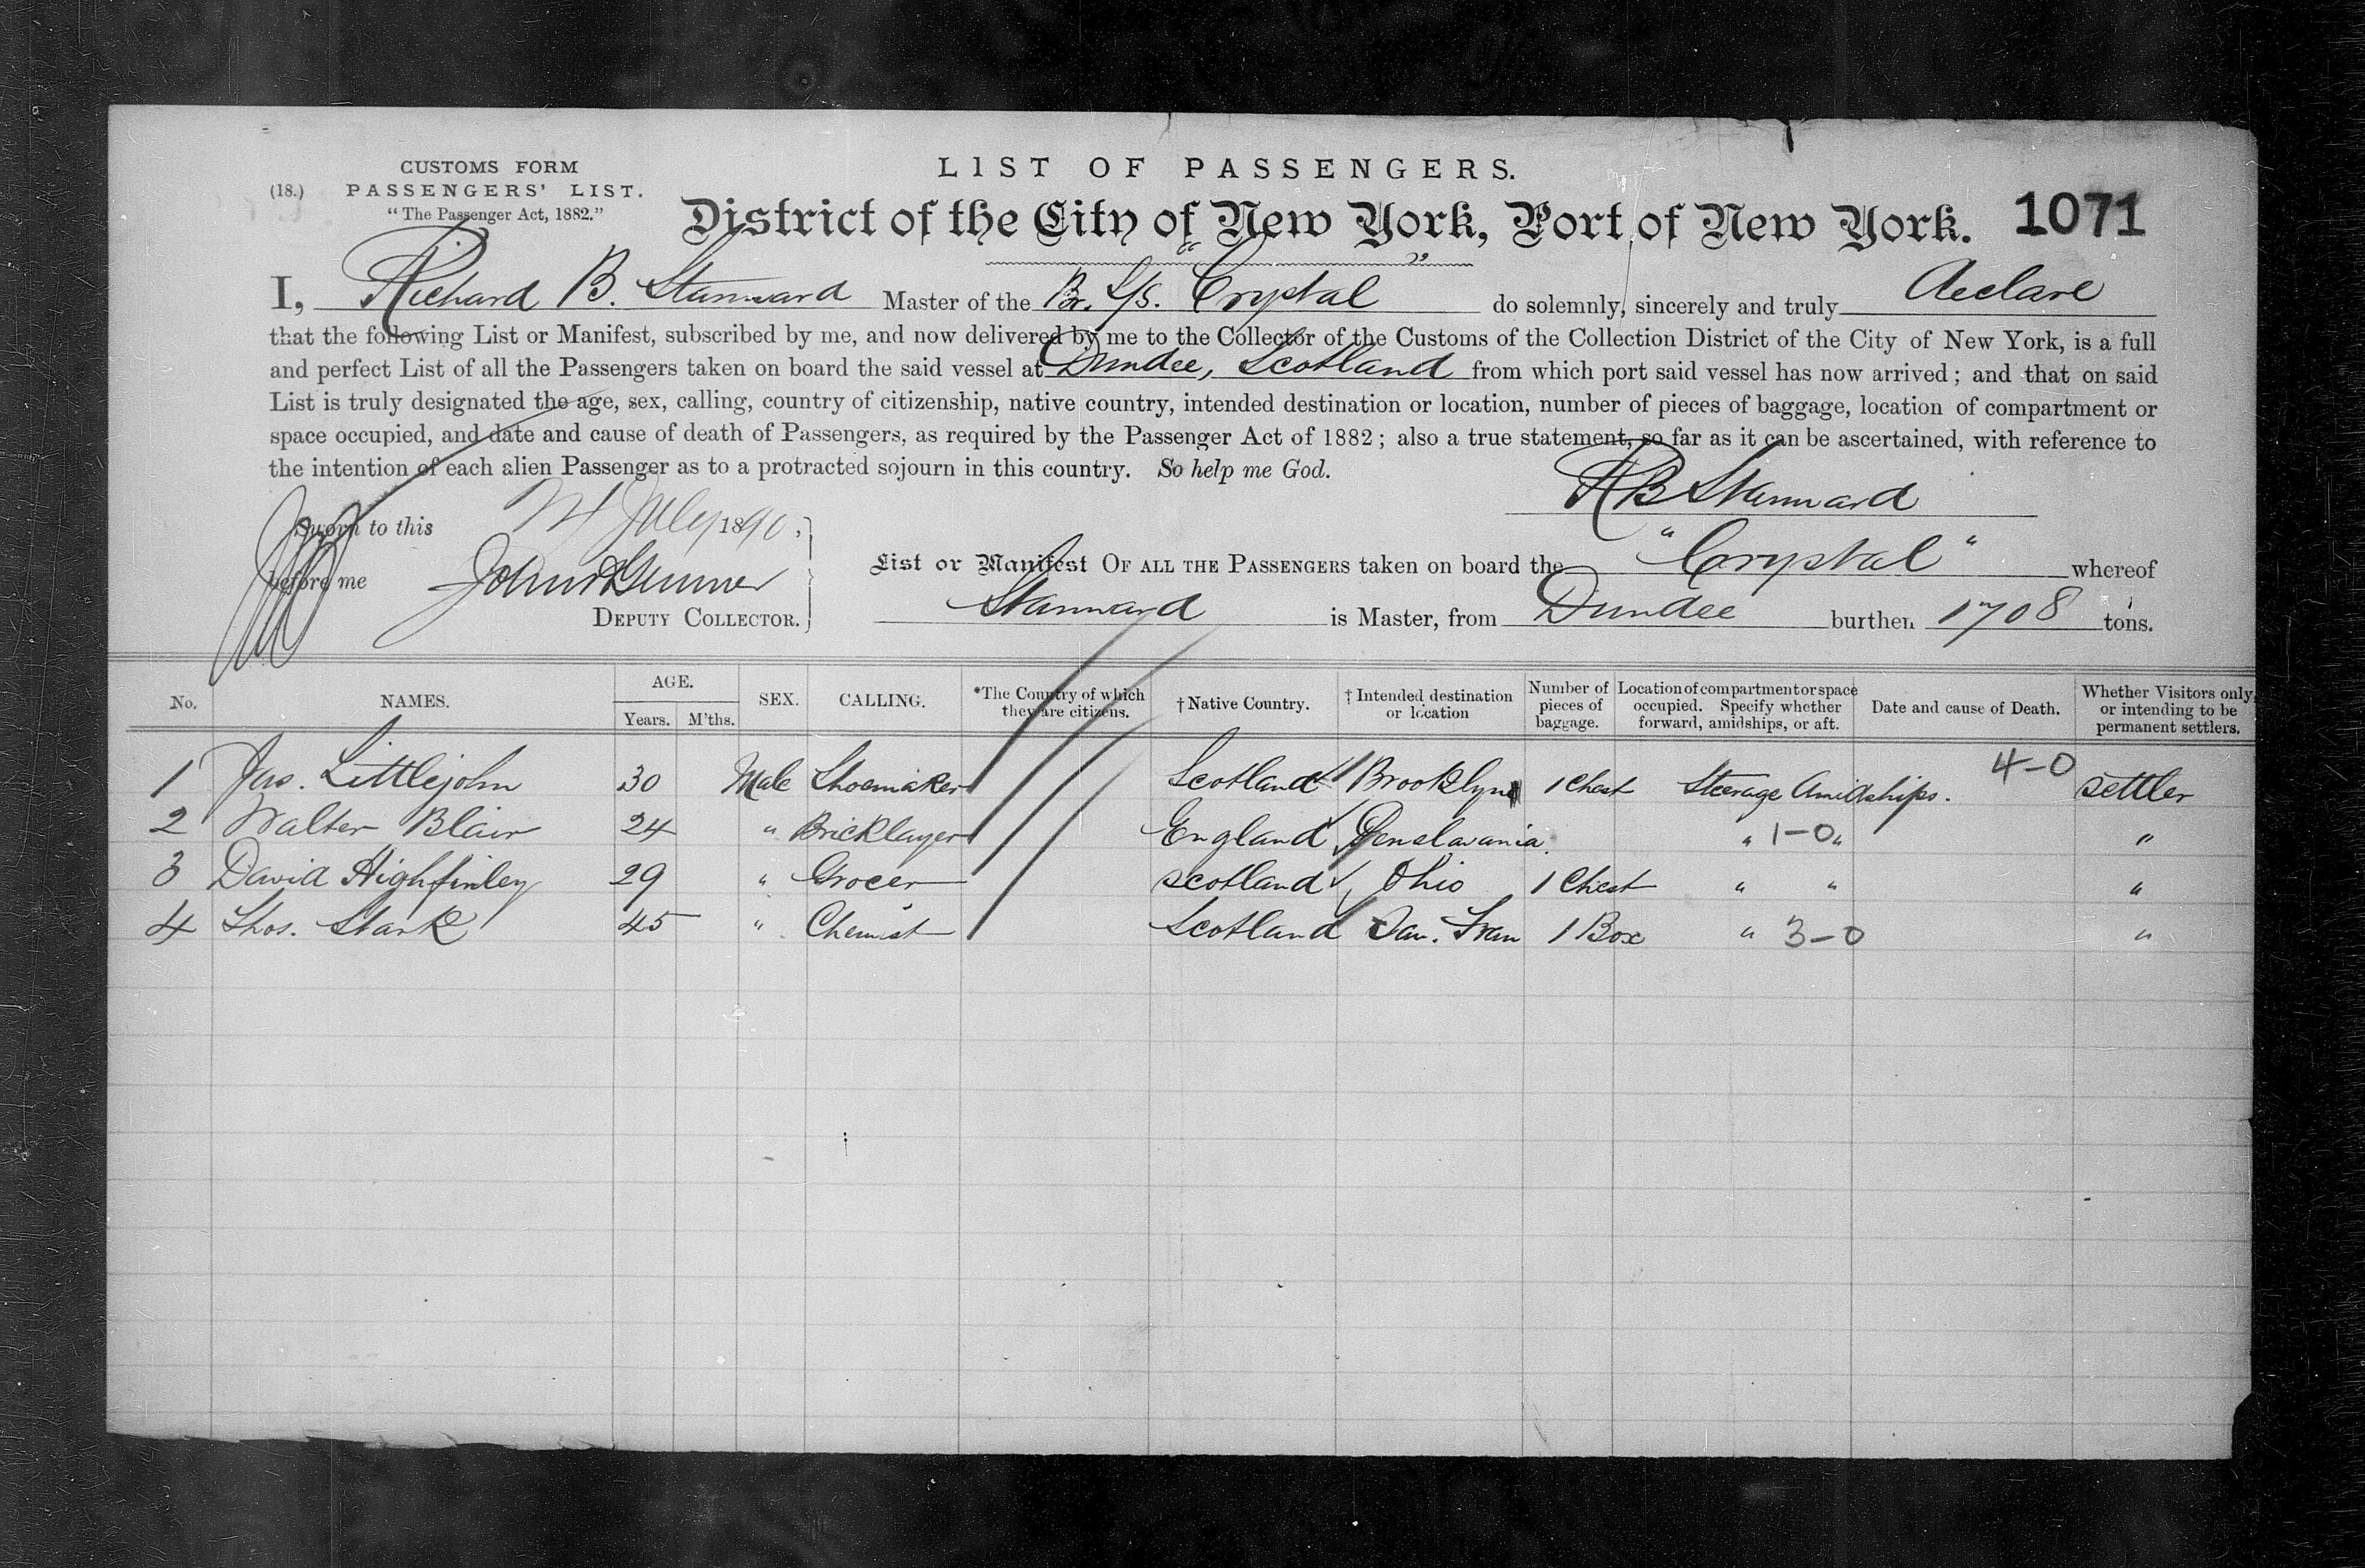 CUSTOMS FORM
(18.) PASSENGERS' LIST.
"The Passenger Act, 1882."
LIST OF PASSENGERS.
District of the City of New York, Port of New York. 1071
I, Richard B. Stannard Master of the Br. S/S. "Crystal" do solemnly, sincerely and truly declare
that the following List or Manifest, subscribed by me, and now delivered by me to the Collector of the Customs of the Collection District of the City of New York, is a full
and perfect List of all the Passengers taken on board the said vessel at Dundee, Scotland from which port said vessel has now arrived; and that on said
List is truly designated the age, sex, calling, country of citizenship, native country, intended destination or location, number of pieces of baggage, location of compartment or
space occupied, and date and cause of death of Passengers, as required by the Passenger Act of 1882; also a true statement, so far as it can be ascertained, with reference to
the intention of each alien Passenger as to a protracted sojourn in this country. So help me God.
RB Stannard
Sworn to this July 1890,
before me John
DEPUTY COLLECTOR.
List or Manifest OF ALL THE PASSENGERS taken on board the "Crystal" whereof
Stannard is Master, from Dundee burthen 1708 tons.
No. NAMES. AGE. Years. M'ths. SEX. CALLING. *The Country of which they are citizens. †Native Country. †Intended destination or location Number of pieces of baggage. Location of compartment or space occupied. Specify whether forward, amidships, or aft. Date and cause of Death. Whether Visitors only, or intending to be permanent settlers.
1 Jas. Littlejohn 30 Male Shoemaker Scotland Brooklyn 1 Chest Steerage Amidships. 4-0 settler
2 Walter Blair 24 " Bricklayer England Penslavania. " 1-0 " "
3 David Highfinley 29 " Grocer Scotland Ohio 1 Chest " " "
4 Thos. Stark 45 " Chemist Scotland San. Fran 1 Box " 3-0 "